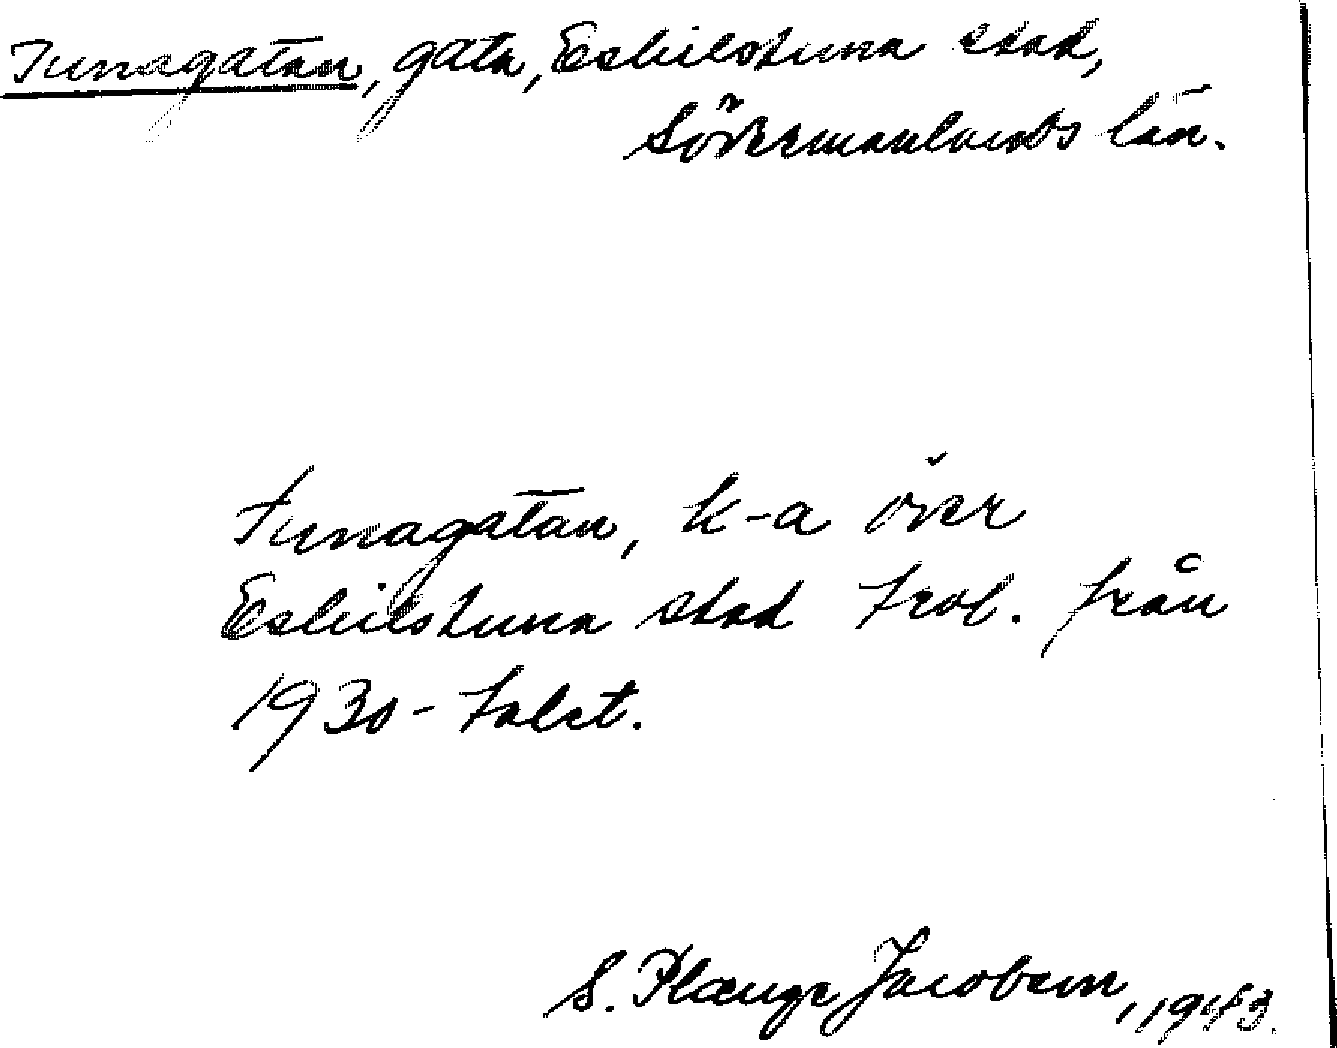 Tunagatan, gata, Eskilstuna stad,
Södermanlands län.
Tunagatan, k-a över
Eskilstuna stad trol. från
1930-talet.
S. Plænge Jacobson, 1943.